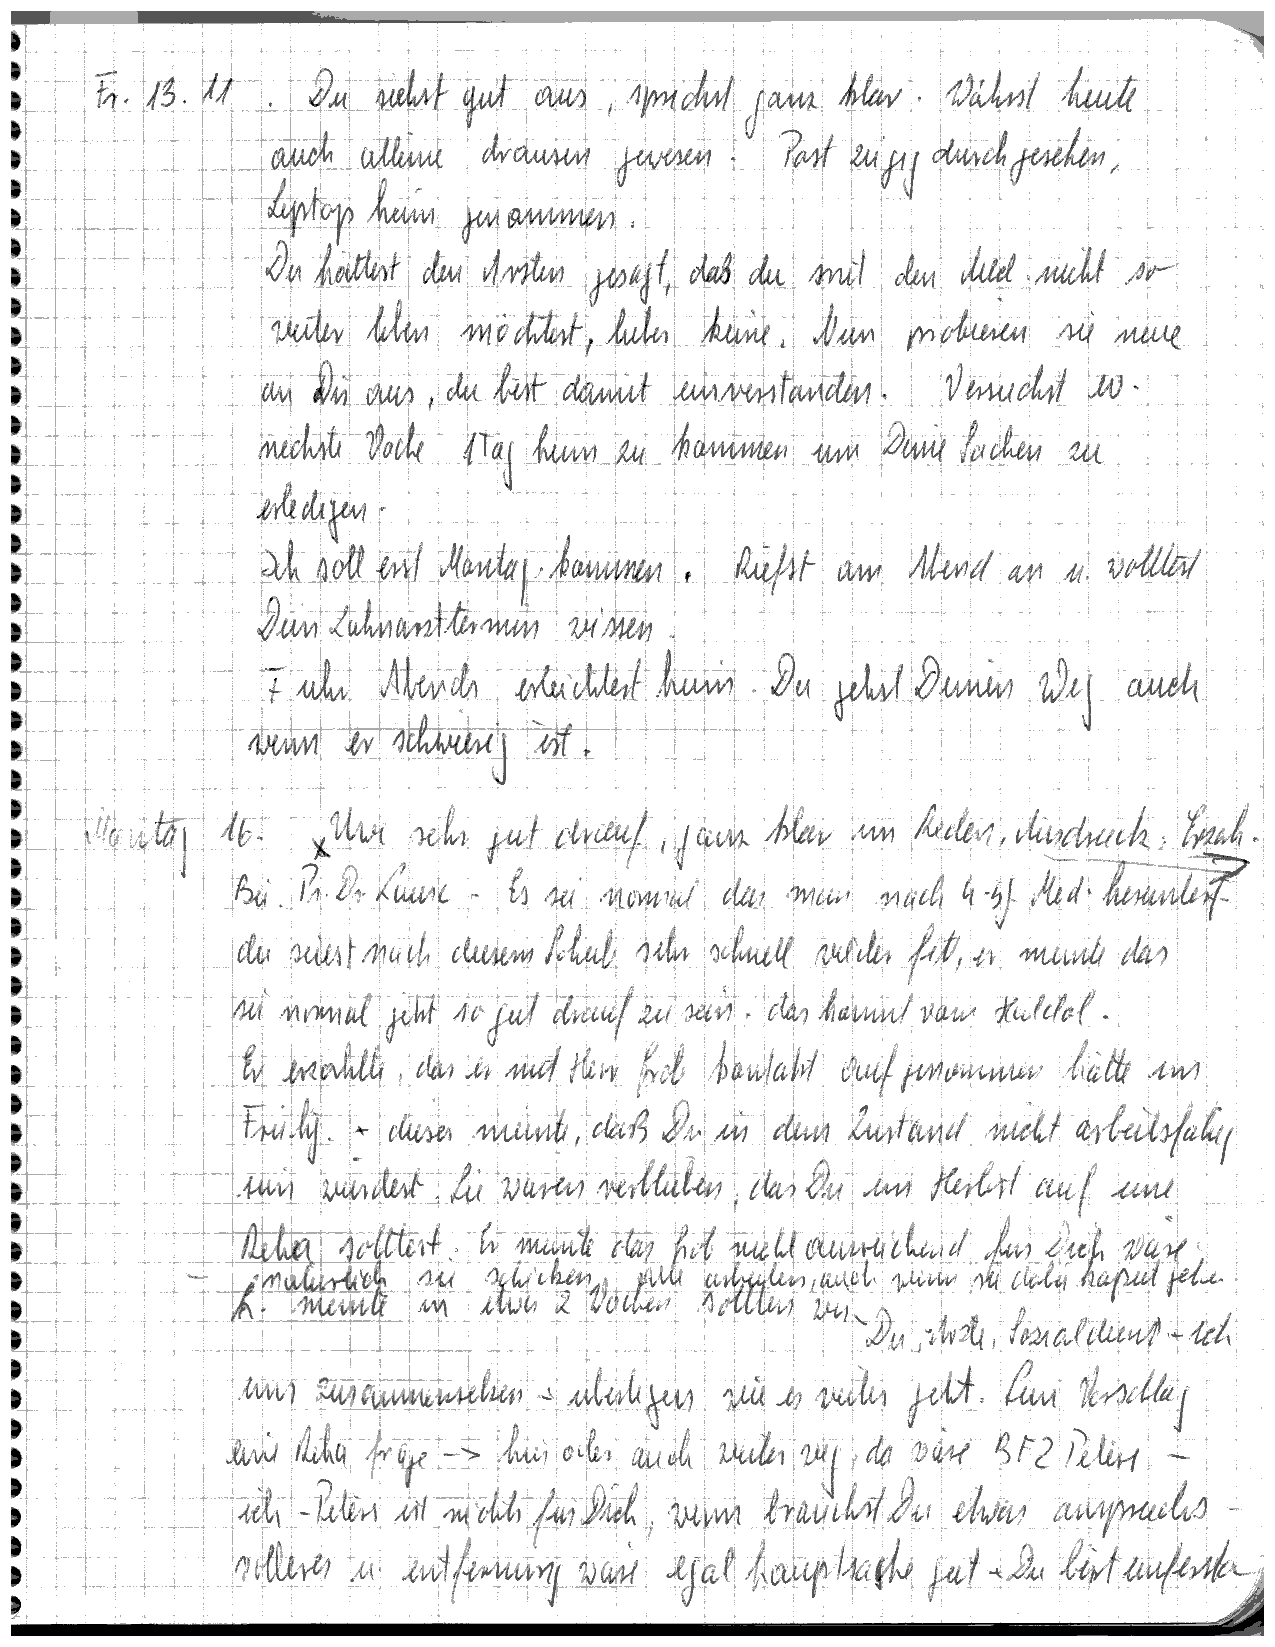 Fr. 13. 11. Du siehst gut aus, sprichst ganz klar. Währst heute
auch alleine drausen gewesen. Post zügig durchgesehen,
Leptop heim genommen.
Du hattest den Arsten gesagt, daß du mit den Med. nicht so
weiter leben möchtest, lieber keine. Nun probieren sie neue
an Dir aus, du bist damit einverstanden. Versuchst
nechste Woche 1 Tag heim zu kommen um Deine Sachen zu
erledigen.
Ich soll erst Montag kommen. Riefst am Abend an u. wolltest
Dein Zahnarzttermin wissen.
F uhr Abends erleichtert heim. Du gehst Deinen Weg auch
wenn er schwierig ist.
Montag 16. x Uwe sehr gut drauf, ganz klar im Reden, Ausdruck,
Bei Pr. Dr. - Es sei normal das man nach 4-5 J Med.
du seiest nach diesem Schub sehr schnell wieder fit, er meinte das
sei normal jetzt so gut drauf zu sein. das kommt vom Haldol.
Er erzahlte, das er mit Herr kontakt aufgenommen hätte im
- dieser meinte, daß Du in dem Zustand nicht arbeitsfähig
sein würdest. Sie waren verblieben, das Du im Herbst auf eine
Reha solltest. Er meinte das nicht ausreichend für Dich wäre.
- natürlich sie schicken alle arbeiten, auch wenn sie dabei kaputt gehen
L. meinte in etwa 2 Wochen sollten wir
Du, Ärzte, Sozialdienst + ich
uns zusammensetzen + überlegen wie es weiter geht. Sein Vorschlag
eine Reha frage -> hier oder auch weiter weg, da wäre BFZ Peters -
ich - Peters ist nichts für Dich, wenn brauchst Du etwas anspruchs-
volleres u. entfernung wäre egal hauptsache gut - Du bist